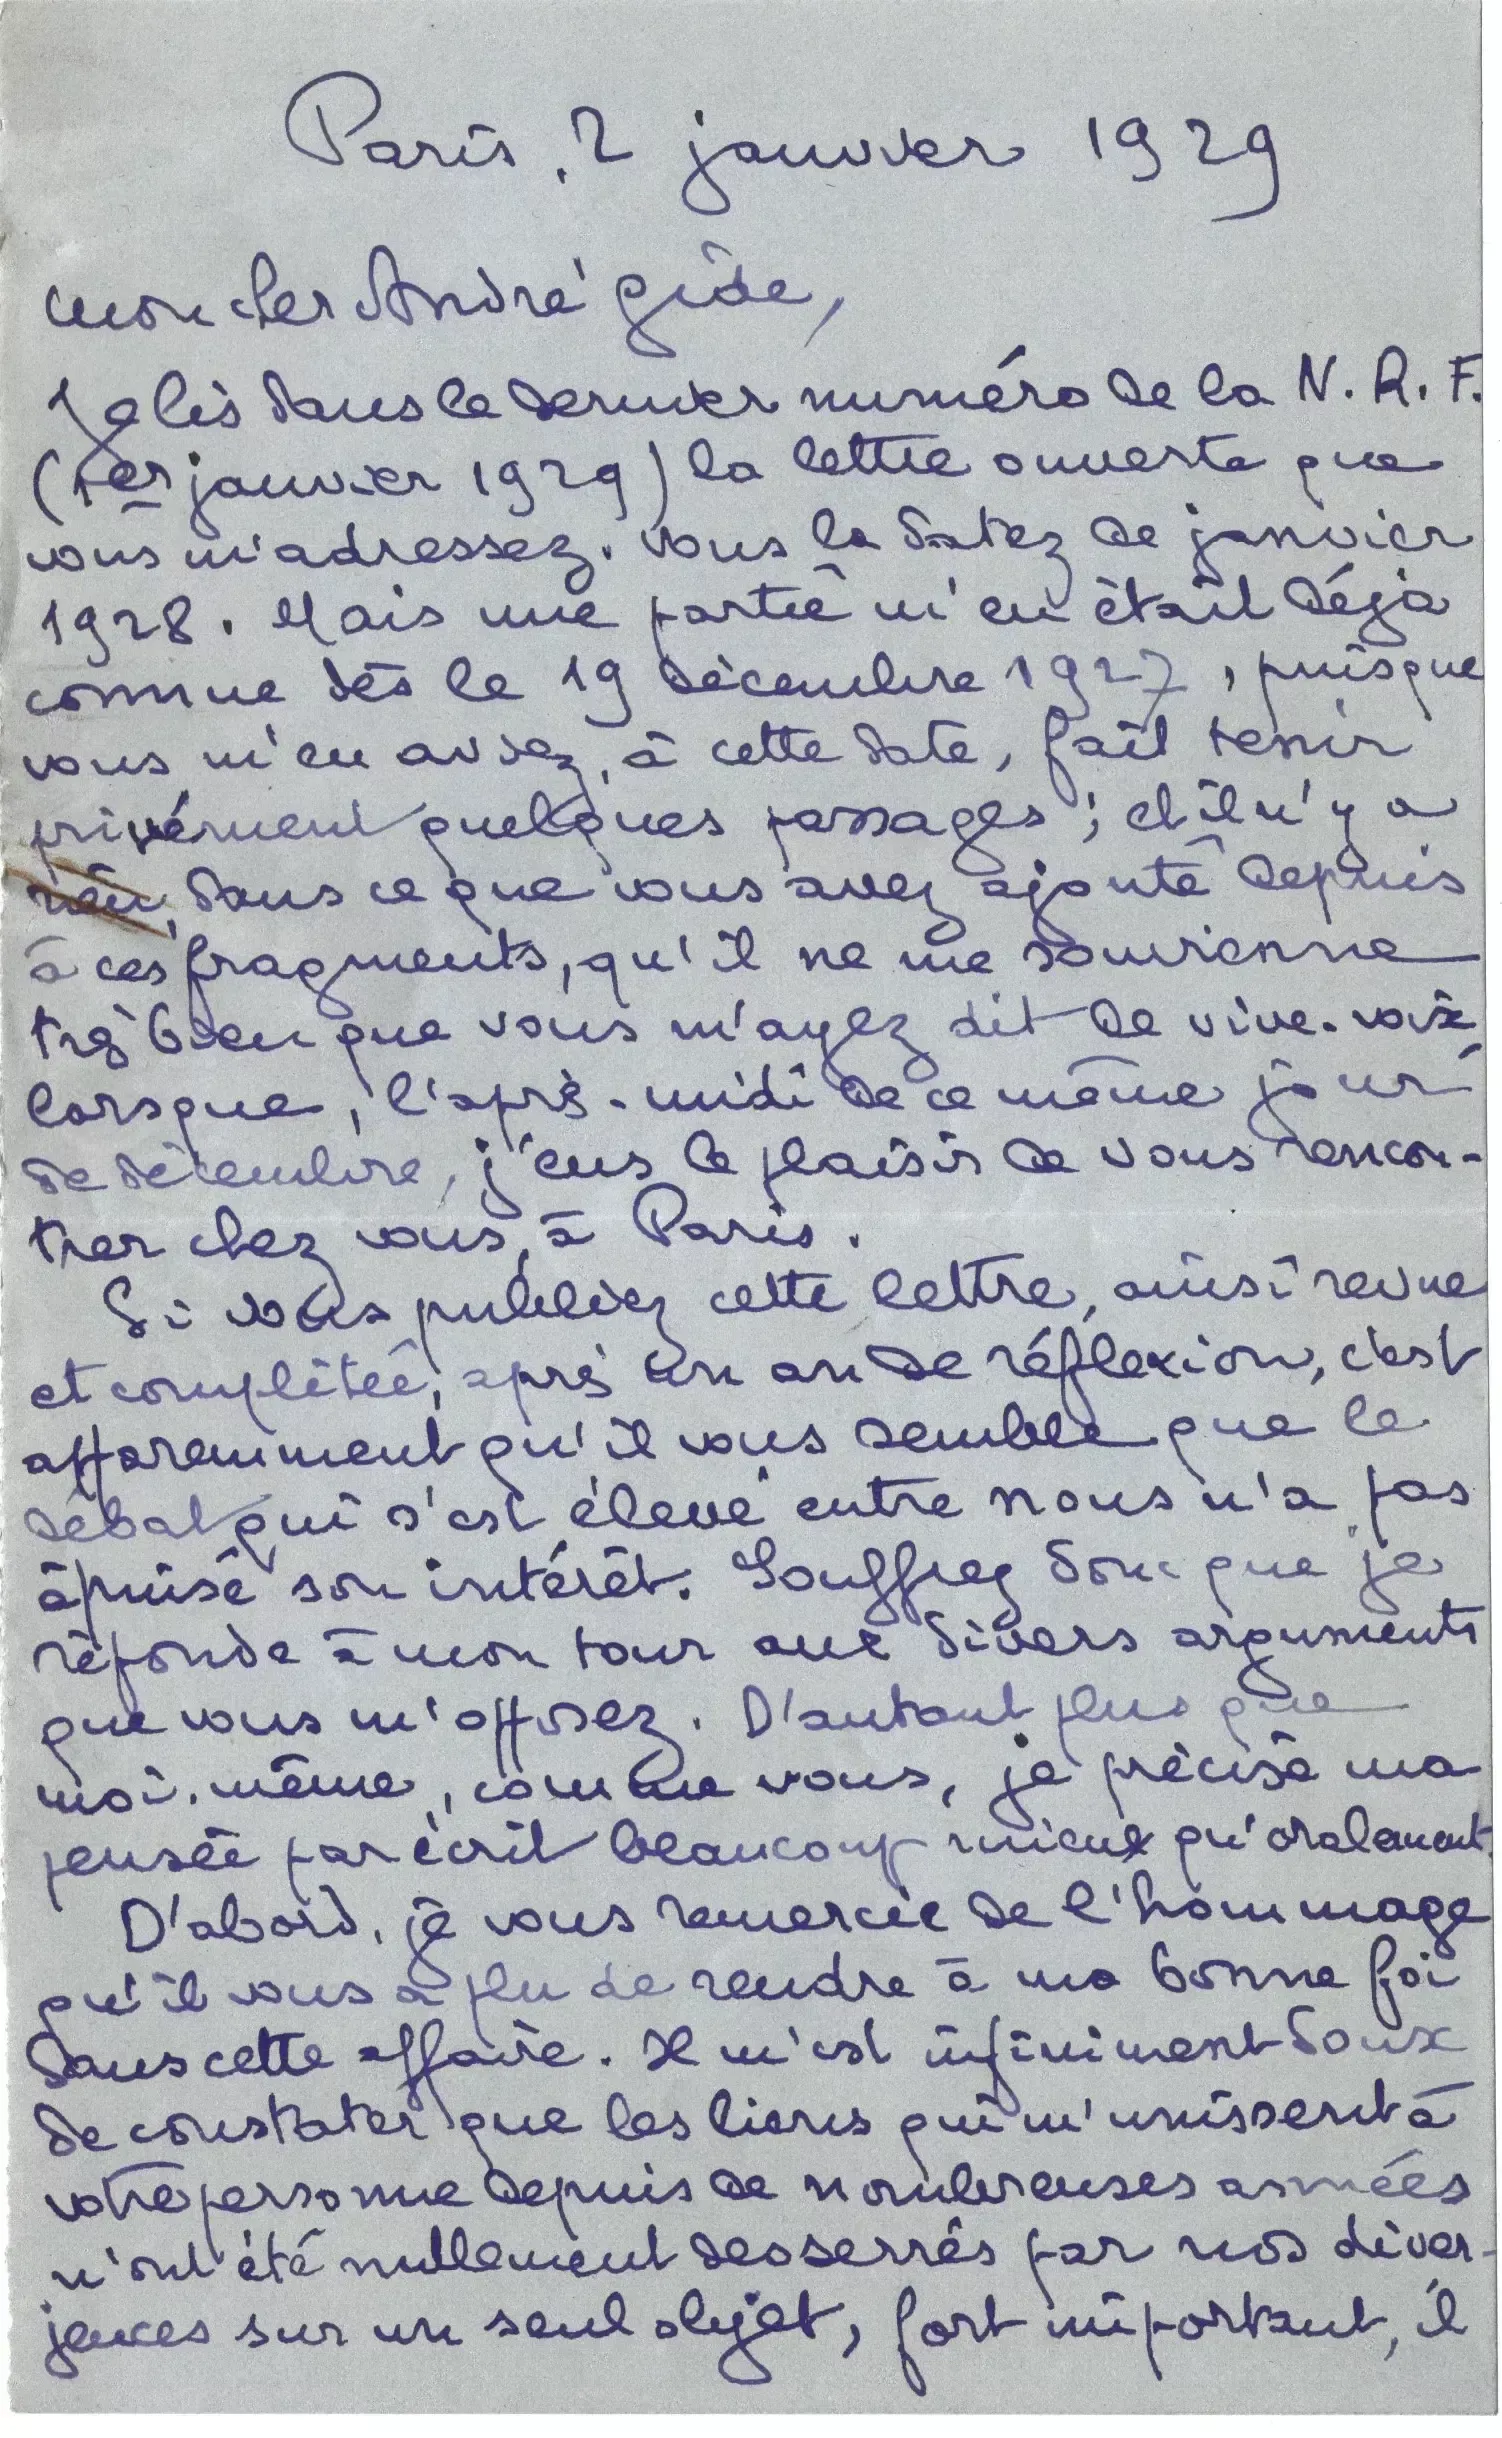 Paris, 2 janvier 1929
Mon cher André Gide,
Je lis dans le dernier numéro de la N. R. F.
(1er janvier 1929) la lettre ouverte que
vous m'adressez. Vous la datez de janvier
1928. Mais une partie m'en était déjà
connue dès le 19 décembre 1927, puisque
vous m'en aviez, à cette date, fait tenir
privément quelques passages ; et il n'y a
rien, dans ce que vous avez ajouté depuis
à ces fragments, qu'il ne me souvienne
très bien que vous m'ayez dit de vive-voix,
lorsque, l'après-midi de ce même jour
de décembre, j'eus le plaisir de vous rencon-
trer chez vous, à Paris.
Si vous publiez cette lettre, ainsi revue
et complétée, après un an de réflexion, c'est
apparemment qu'il vous semble que le
débat qui s'est élevé entre nous n'a pas
épuisé son intérêt. Souffrez donc que je
réponde à mon tour aux divers arguments
que vous m'opposez. D'autant plus que
moi-même, comme vous, je précise ma
pensée par écrit beaucoup mieux qu'oralement.
D'abord, je vous remercie de l'hommage
qu'il vous a plu de rendre à ma bonne foi
dans cette affaire. Il m'est infiniment doux
de constater que les liens qui m'unissent à
votre personne depuis de nombreuses années
n'ont été nullement desserrés par nos diver-
jences sur un seul objet, fort important, il